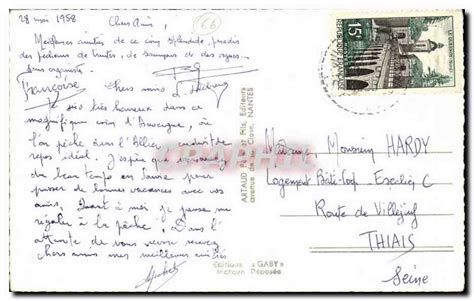 28 mai 1958
Chers Amis,
Meilleures amitiés de ce coin splendide, paradis
des pêcheurs de truites, de saumons et des
Françoise
Chers amis
Je suis très heureux dans ce
magnifique coin d'Auvergne, où
l'on pêche dans l'Allier, endroit de
repos idéal. J'espère que vous
du beau temps en pour
passer de bonnes vacances avec vos
amis. Quant à moi je pense me
régaler à la pêche. Dans l'
attente de vous revoir recevez
chers amis mes meilleures amitiés
ARTAUD Père et Fils, Editeurs
NANTES
Editions "GABY"
Marque Déposée
15F
REPUBLIQUE FRANCAISE
Madame Monsieur HARDY
Logement Esc C
Route de Villejuif
THIAIS
Seine